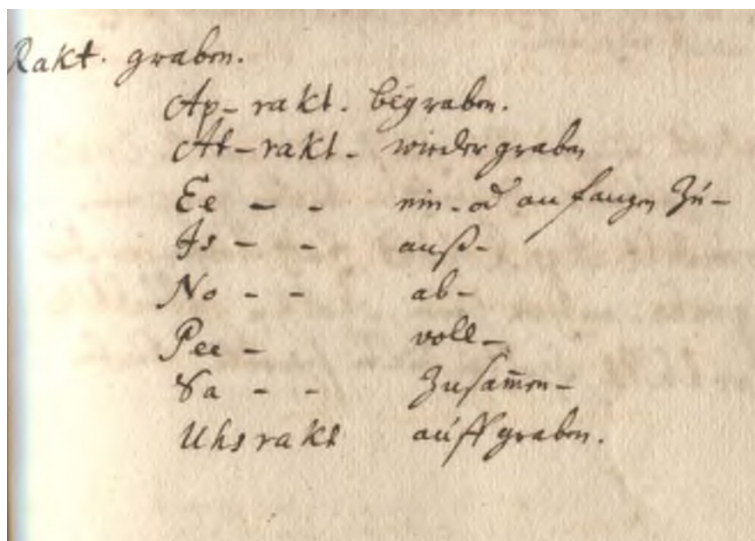 Rakt. graben.
Ap-rakt. begraben.
At-rakt- wieder graben
Ee - - ein-od anfangen zu-
Is - - auß-
No - - ab-
Pee - voll-
Sa - - Zusam̄en-
Uhsrakt auffgraben.